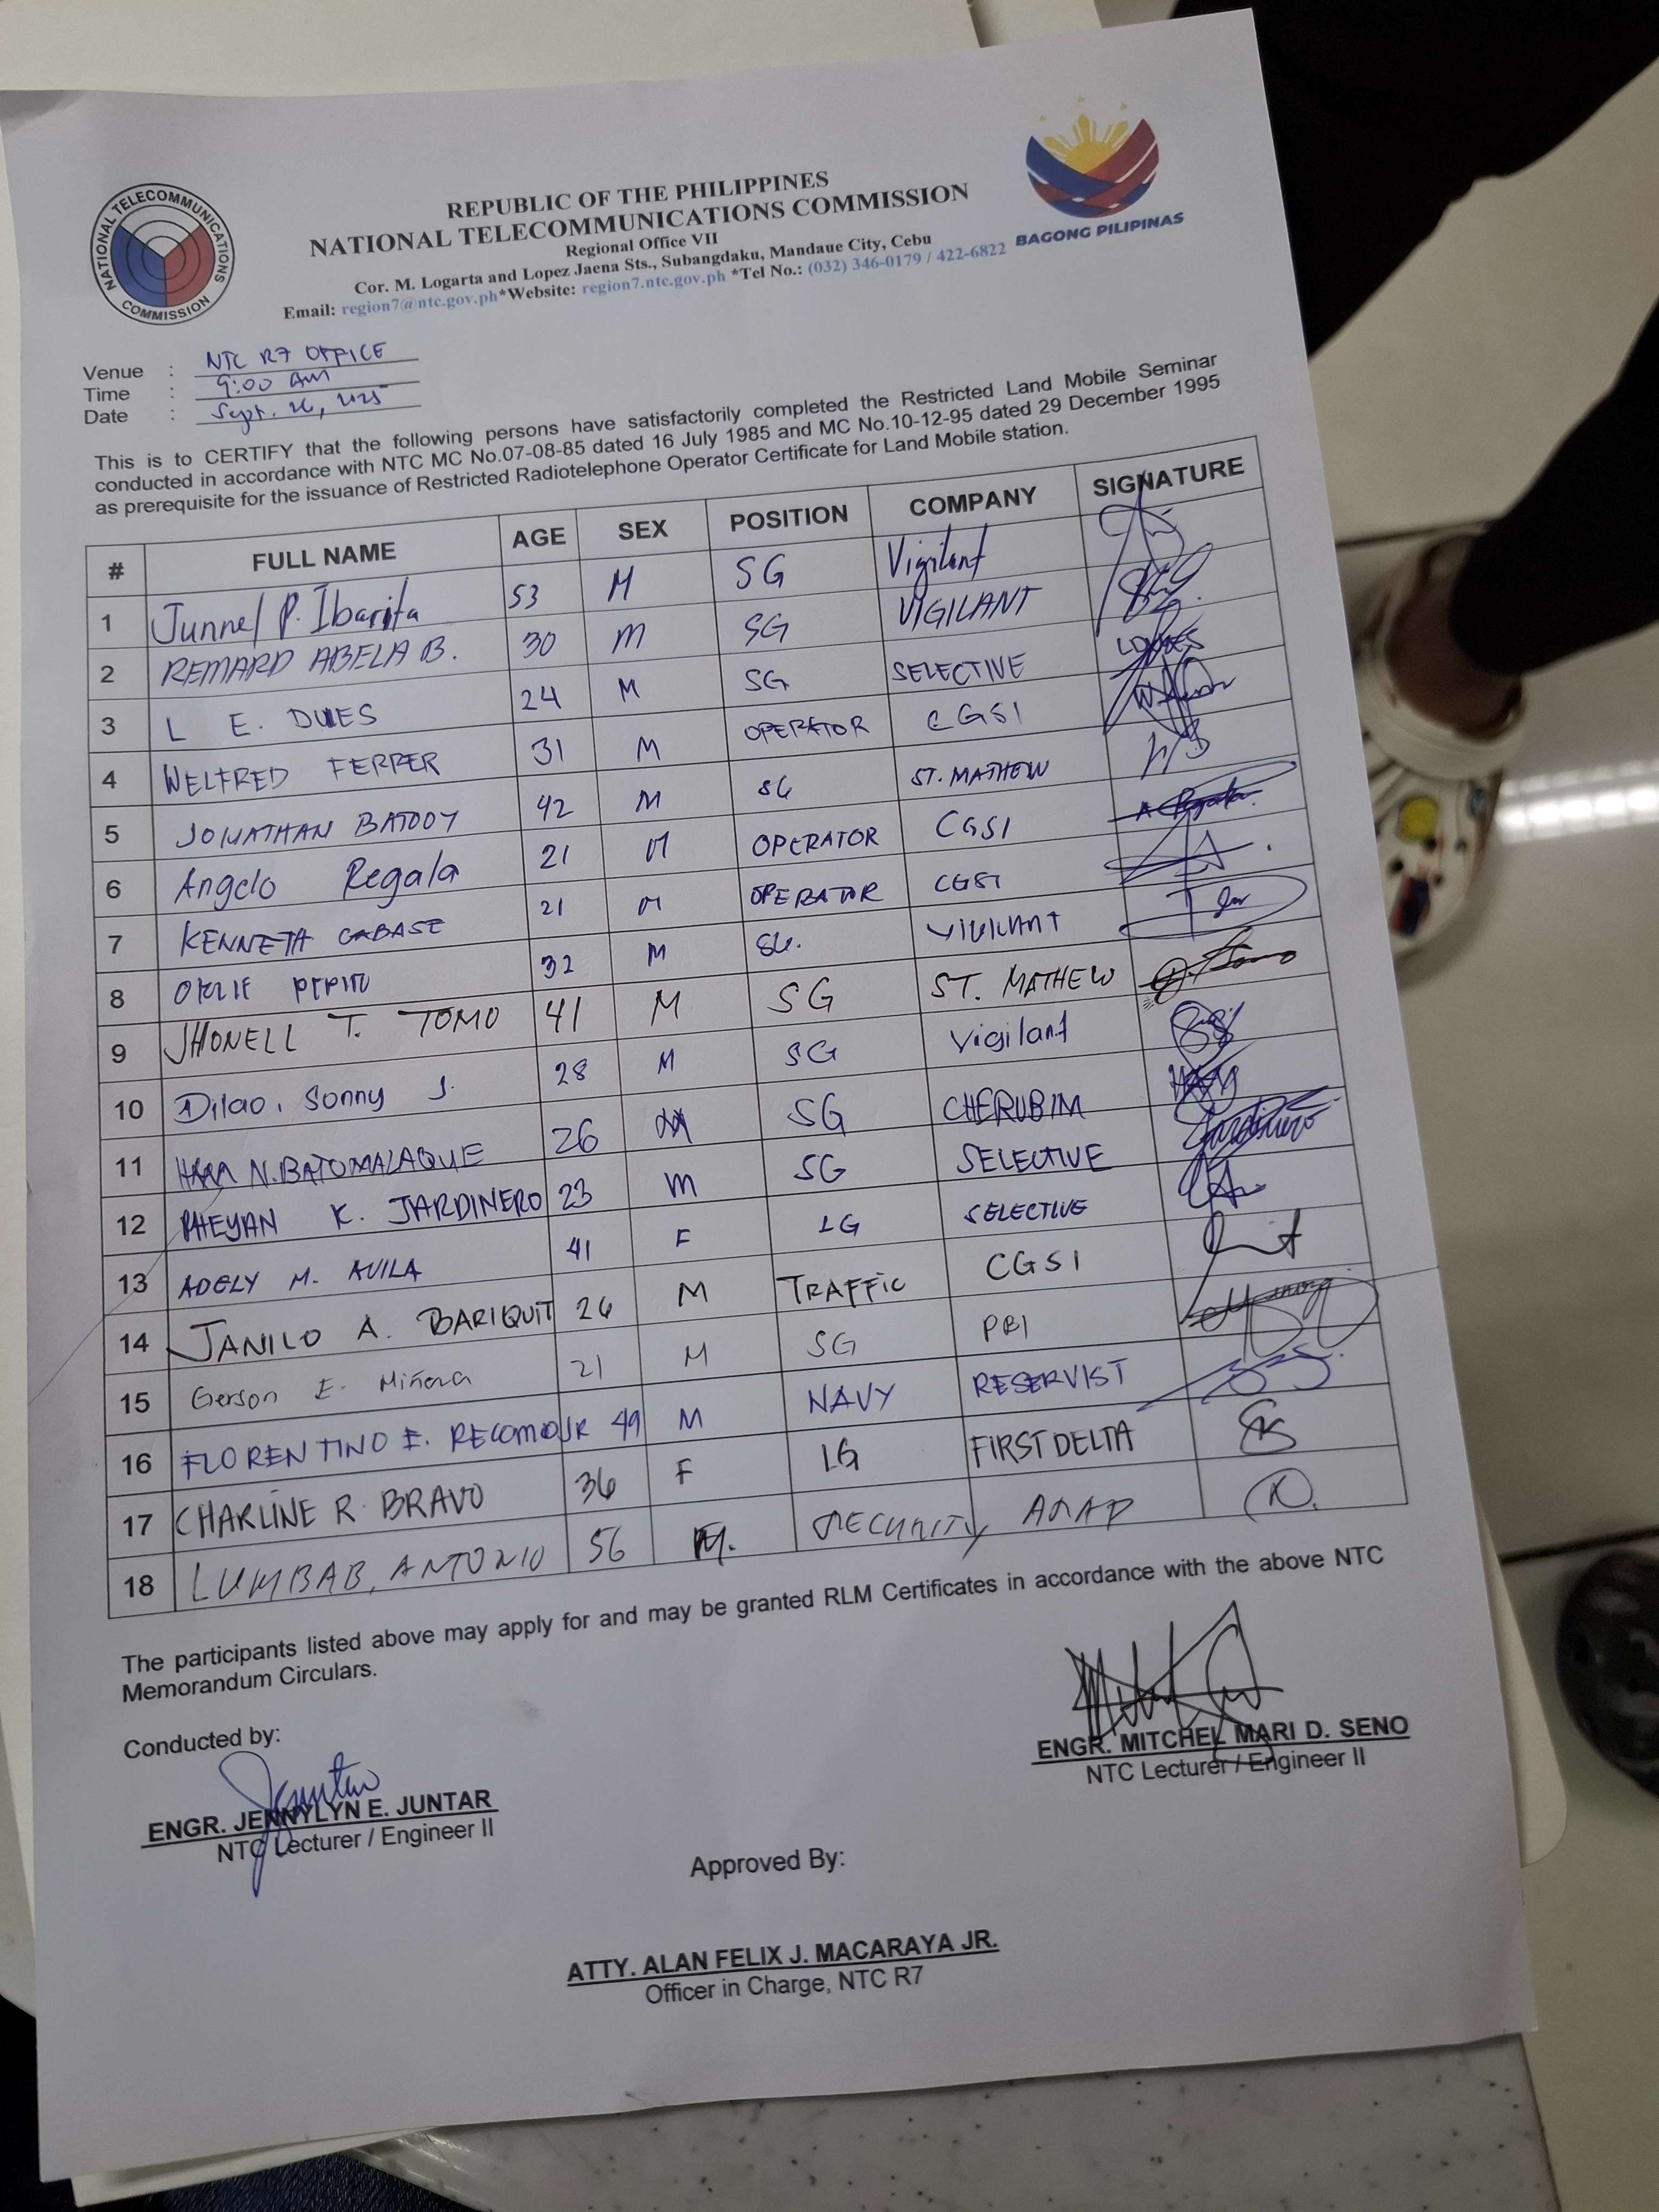 NATIONAL TELECOMMUNICATIONS COMMISSION
BAGONG PILIPINAS
REPUBLIC OF THE PHILIPPINES
NATIONAL TELECOMMUNICATIONS COMMISSION
Regional Office VII
Cor. M. Logarta and Lopez Jaena Sts., Subangdaku, Mandaue City, Cebu
Email: region7@ntc.gov.ph*Website: region7.ntc.gov.ph *Tel No.: (032) 346-0179 / 422-6822
Venue : NTC R7 OFFICE
Time : 9:00 AM
Date : Sept. 26, 2025
This is to CERTIFY that the following persons have satisfactorily completed the Restricted Land Mobile Seminar
conducted in accordance with NTC MC No.07-08-85 dated 16 July 1985 and MC No.10-12-95 dated 29 December 1995
as prerequisite for the issuance of Restricted Radiotelephone Operator Certificate for Land Mobile station.
# FULL NAME AGE SEX POSITION COMPANY SIGNATURE
1 Junnel P. Ibarita 53 M SG Vigilant
2 REMARD ABELA B. 30 M SG VIGILANT
3 L E. 24 M SG SELECTIVE
4 WELFRED FERRER 31 M OPERATOR CGSI
5 JONATHAN 42 M SG ST. MATHEW
6 Angelo Regala 21 M OPERATOR CGSI
7 KENNETH CABASE 21 M OPERATOR CGSI
8 PEPITO 32 M SG. VIGILANT
9 JHONELL T. TOMO 41 M SG ST. MATHEW
10 Dilao, Sonny J. 28 M SG Vigilant
11 N. BATOMALAQUE 26 M SG CHERUBIM
12 RHEYAN K. JARDINERO 23 M SG SELECTIVE
13 ADELY M. AVILA 41 F LG SELECTIVE
14 JANILO A. BARIQUIT 26 M TRAFFIC CGSI
15 Gerson E. Miñoza 21 M SG PBI
16 FLORENTINO E. RECOMO JR 49 M NAVY RESERVIST
17 CHARLINE R. BRAVO 36 F LG FIRST DELTA
18 LUMBAB, ANTONIO 56 M. SECURITY
The participants listed above may apply for and may be granted RLM Certificates in accordance with the above NTC
Memorandum Circulars.
Conducted by:
ENGR. JENNYLYN E. JUNTAR
NTC Lecturer / Engineer II
ENGR. MITCHEL MARI D. SENO
NTC Lecturer / Engineer II
Approved By:
ATTY. ALAN FELIX J. MACARAYA JR.
Officer in Charge, NTC R7